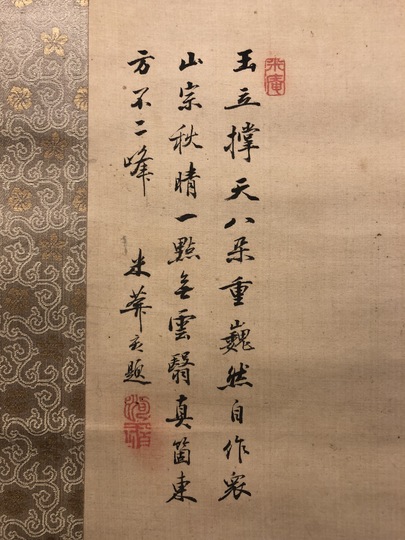 米庵
玉立撐天八朵重巍然自作衆
山宗秋晴一點無雲翳真箇東
方不二峰
米葊亥題